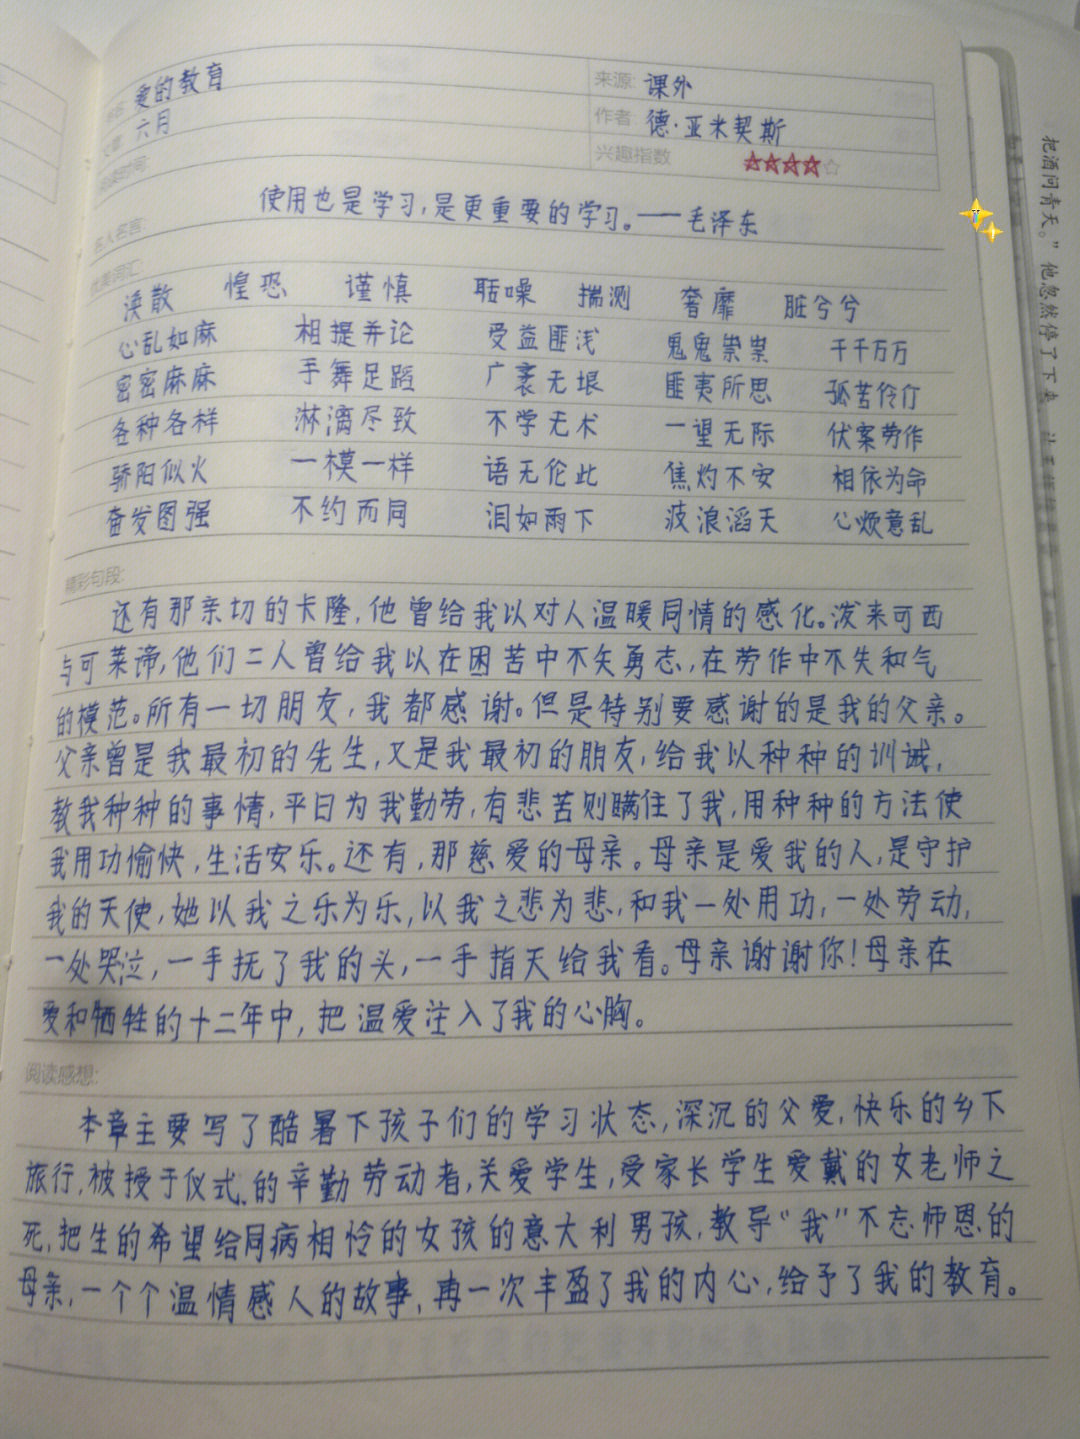 爱的教育
来源: 课外
六月
作者: 德·亚米契斯
兴趣指数
使用也是学习,是更重要的学习。——毛泽东
名人名言:
优美词汇:
涣散 惶恐 谨慎 聒噪 揣测 奢靡 脏兮兮
心乱如麻 相提并论 受益匪浅 鬼鬼祟祟 千千万万
密密麻麻 手舞足蹈 广袤无垠 匪夷所思 孤苦伶仃
各种各样 淋漓尽致 不学无术 一望无际 伏案劳作
骄阳似火 一模一样 语无伦此 焦灼不安 相依为命
奋发图强 不约而同 泪如雨下 波浪滔天 心烦意乱
精彩句段:
还有那亲切的卡隆,他曾给我以对人温暖同情的感化。泼来可西
与可莱谛,他们二人曾给我以在困苦中不失勇志,在劳作中不失和气
的模范。所有一切朋友,我都感谢。但是特别要感谢的是我的父亲。
父亲曾是我最初的先生,又是我最初的朋友,给我以种种的训诫,
教我种种的事情,平日为我勤劳,有悲苦则瞒住了我,用种种的方法使
我用功愉快,生活安乐。还有,那慈爱的母亲。母亲是爱我的人,是守护
我的天使,她以我之乐为乐,以我之悲为悲,和我一处用功,一处劳动,
一处哭泣,一手抚了我的头,一手指天给我看。母亲谢谢你!母亲在
爱和牺牲的十二年中,把温爱注入了我的心胸。
阅读感想:
本章主要写了酷暑下孩子们的学习状态,深沉的父爱,快乐的乡下
旅行,被授于仪式的辛勤劳动者,关爱学生,受家长学生爱戴的女老师之
死,把生的希望给同病相怜的女孩的意大利男孩,教导“我”不忘师恩的
母亲,一个个温情感人的故事,再一次丰盈了我的内心,给予了我的教育。
把酒问青天。”他忽然停了下来